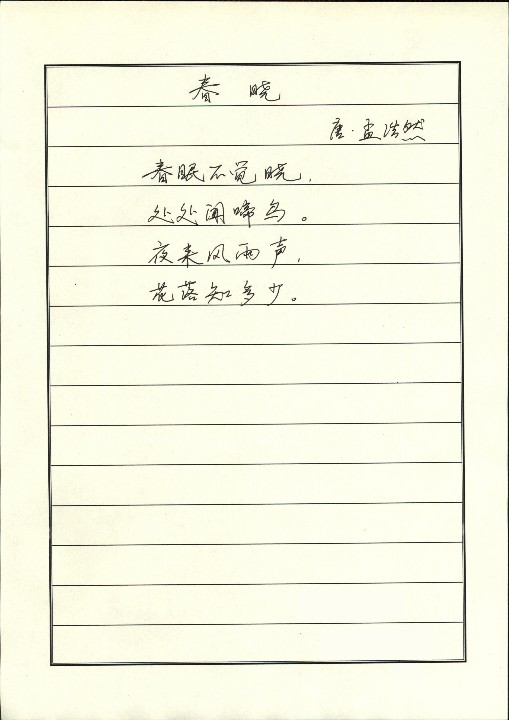 春 晓
唐·孟浩然
春眠不觉晓,
处处闻啼鸟。
夜来风雨声,
花落知多少。